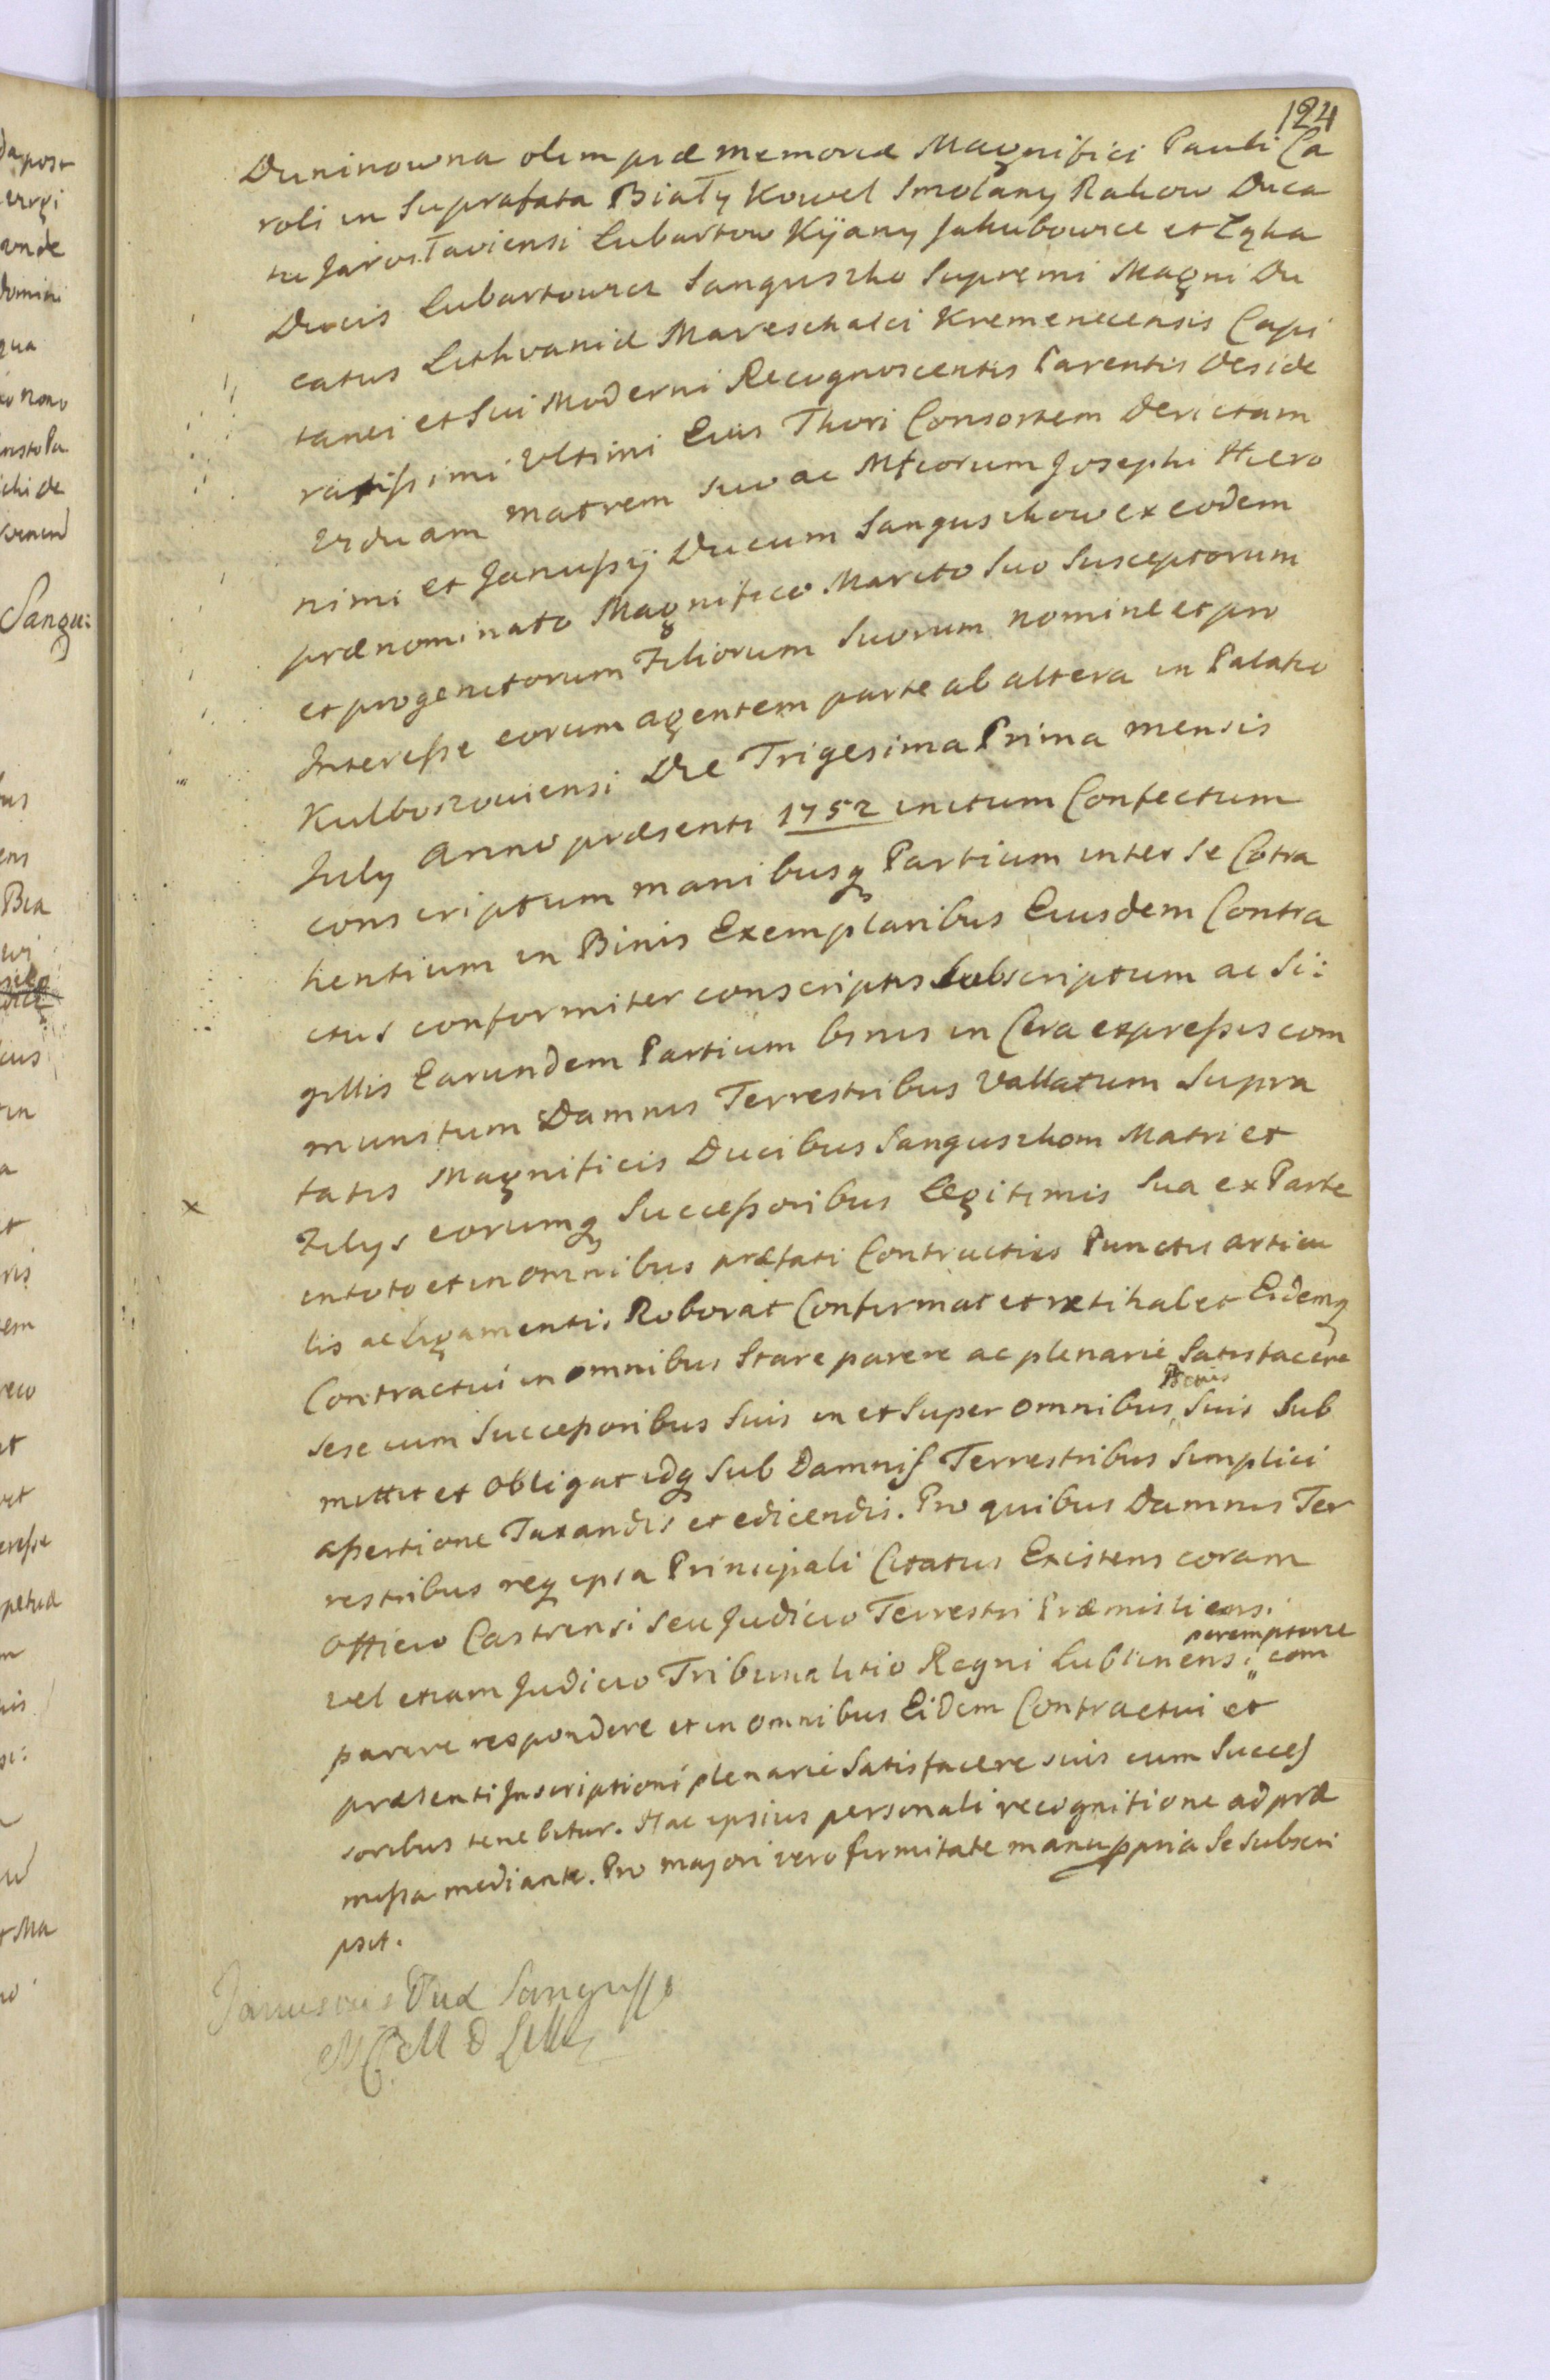 124
Duninowna olim piæ memoriæ Magnifici Pauli Ca
roli in Suprafata Biały Kowel Smolany Rakow Duca
tu Jarosłaviensi Lubartow Kÿany Jakubowice et Zęka
Ducis Lubartowicz Sanguszko Supremi Magni Du
catus Lithvaniæ Mareschalci Kremenecensis Capi
tanei et Sui Moderni Recognoscentis Parentis deside
ratissimi Ultimi Eius Thori Consortem derictam
viduam matrem suo ac Mficorum Josephi Hiero
nimi et Janussÿ Ducum Sanguszkow ex eodem
prænominato Magnifico Marito Suo Susceptorum
et progenitorum Filiorum Suorum nomine et pro
Interesse eorum agentem parte ab altera in Palatio
Kulboszoviensi Die Trigesima Prima mensis
July Anno præsenti 1752 initum Confectum
conscriptum manibusq Partium inter se Cotra
hentium in Binis Exemplaribus Eiusdem Contra
ctus conformiter conscriptis Subscriptum ac Si:
gillis Earundem Partium binis in Cera expressis com
munitum Damnis Terrestribus Vallatum Supra
fatis Magnificis Ducibus Sanguszkom Matri et
Filys eorumq Successoribus Legitimis Sua ex Parte
in toto et in omnibus præfati Contractus Punctis articu
lis ac Ligamentis Roborat Confirmat et ratihabet Eidemq
Contractui in omnibus Stare parere ac plenarie Satisfacere
sese cum Successoribus Suis in et Super omnibus Bonis Suis Sub
mittit et Obligat idq Sub Damnis Terrestribus Simplici
assertione Taxandis et edicendis. Pro quibus Damnis Ter
restribus req ipsa Principali Citatus Existens coram
Officio Castrensi seu Judicio Terrestri Præmisliensi
vel etiam Judicio Tribunalitio Regni Lublinensi peremptorie com
parere respondere et in omnibus Eidem Contractui et
præsenti Inscriptioni plenarie Satisfacere suis cum Succes
soribus tenebitur. Hac ipsius personali recognitione ad præ
missa mediante. Pro majori vero firmitate manu ppria Se subscri
psit.
Janusius Dux Sangussko